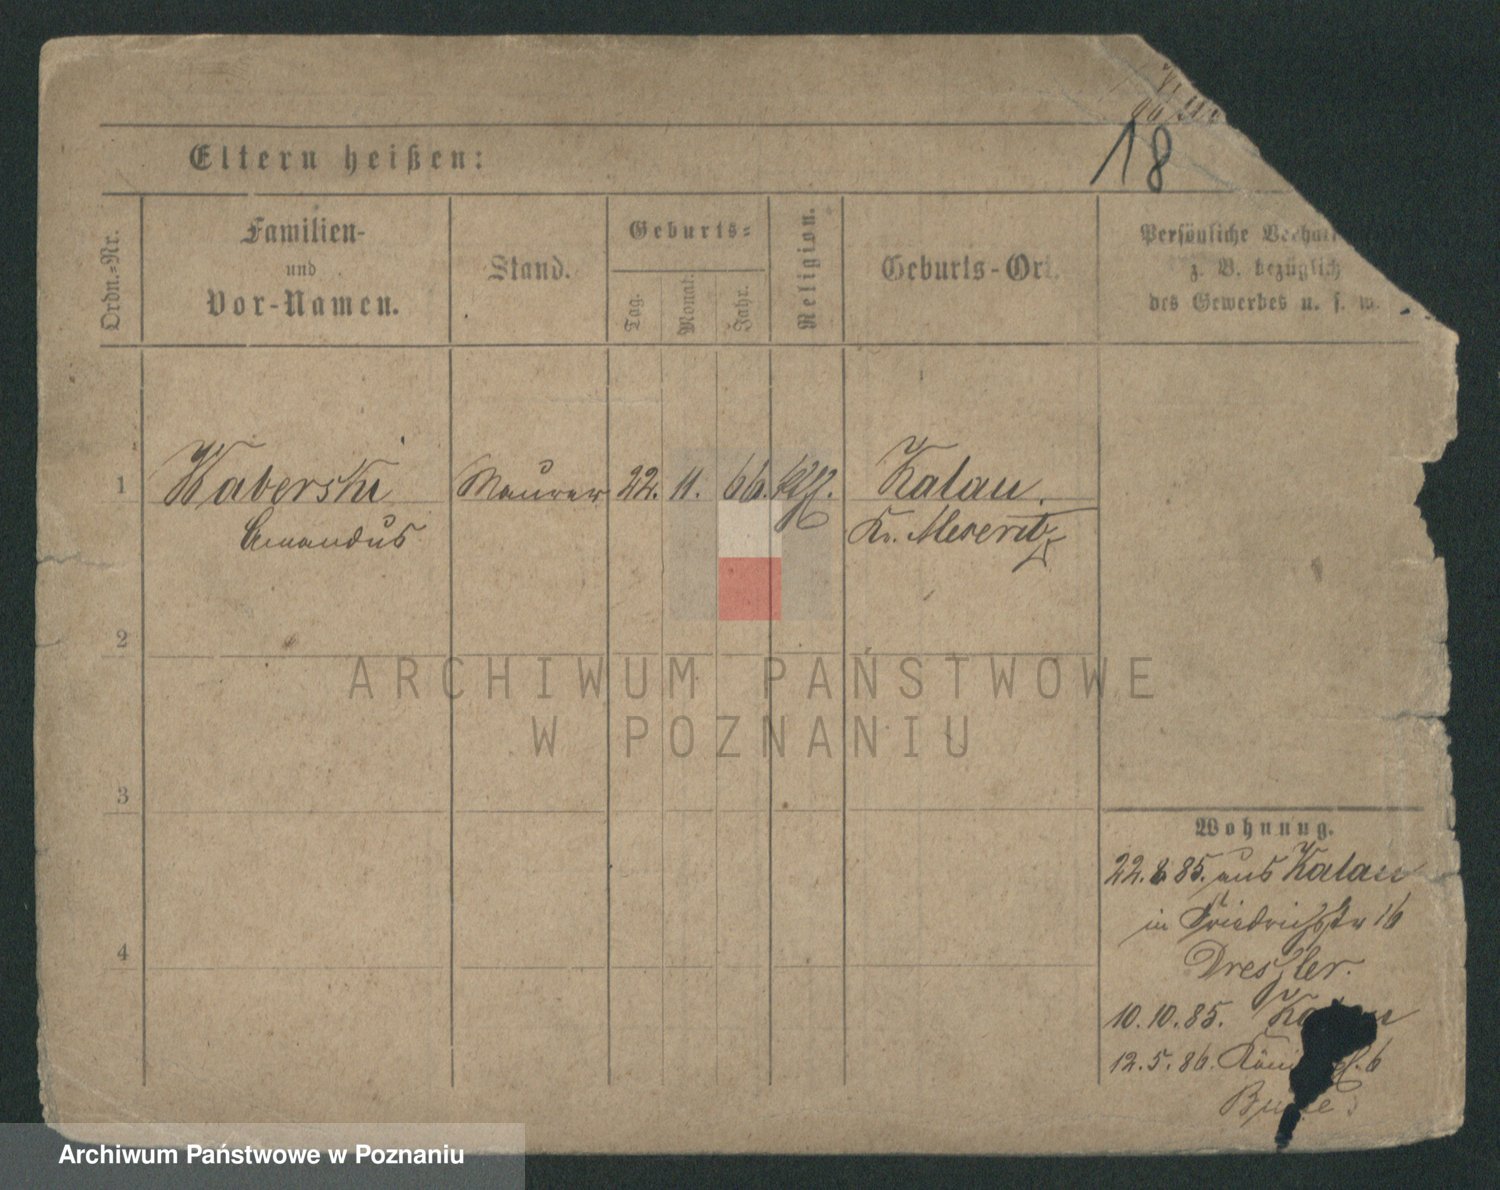 18
Eltern heißen:
Ordn.-Nr.
Familien-
und
Vor-Namen.
Stand.
Geburts-
Tag.
Monat.
Jahr.
Religion.
Geburts-Ort.
Persönliche
z. B. bezüglich
des Gewerbes u. s. w.
1 Kaberski Maurer 22. 11. 66. Kalau.
Amandus Kr. Meseritz
2
3
4
ARCHIWUM PAŃSTWOWE
W POZNANIU
Wohnung.
22. 8 85. aus Kalau
in Friedrichstr 16
Dressler.
10. 10. 85.
12. 5. 86.
Archiwum Państwowe w Poznaniu